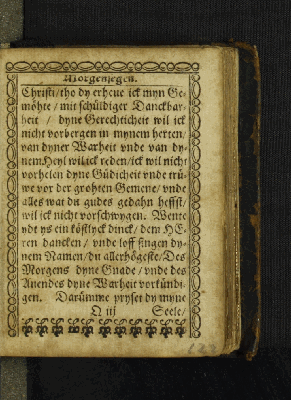 Morgensegen.
Christi / tho dy erheue ick myn Ge-
möhte / mit schüldiger Danckbar-
heit / dyne Gerechticheit wil ick
nicht vorbergen in mynem herten /
van dyner Warheit vnde van dy-
nem Heyl wil ick reden / ick wil nicht
vorhelen dyne Güdicheit vnde trü-
we vor der grohten Gemene / vnde
alles wat du gudes gedahn heffst /
wil ick nicht vorschwygen. Wente
ydt ys ein köstlyck dinck / dem HE-
ren dancken / vnde loff singen dy-
nem Namen / du allerhögeste / Des
Morgens dyne Gnade / vnde des
Auendes dyne Warheit vorkündi-
gen. Darümme pryset dy myne
Q iij Seele /